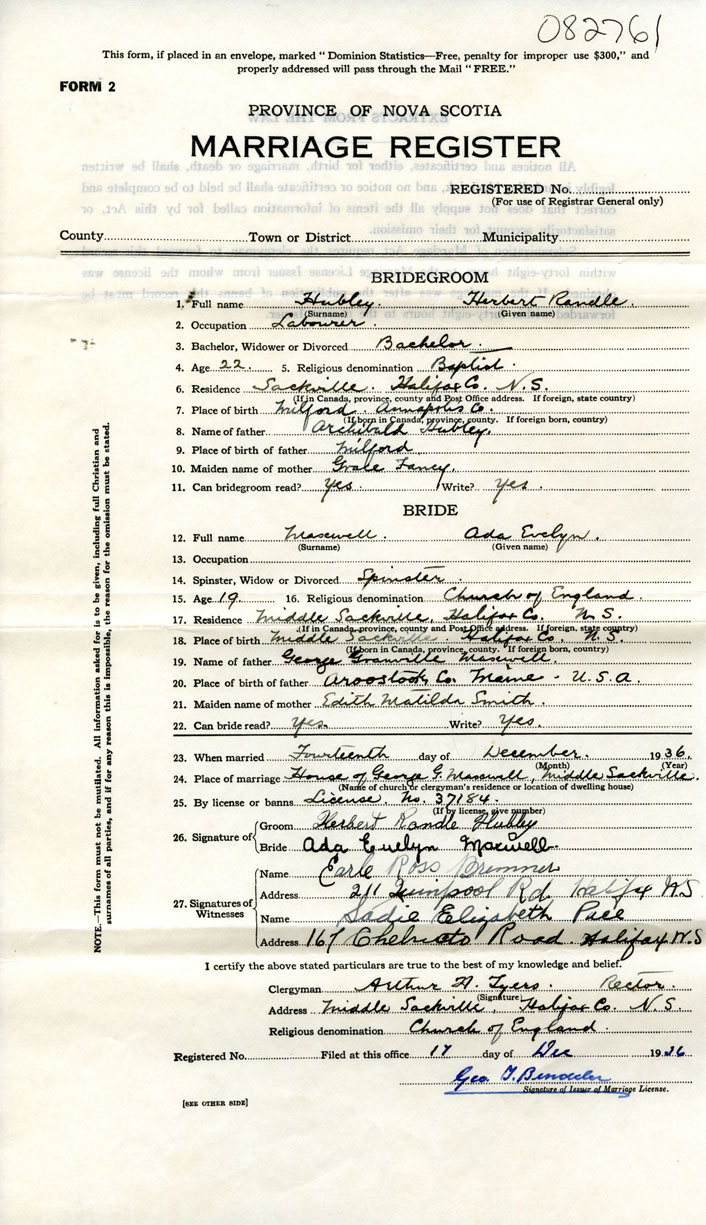 082761
This form, if placed in an envelope, marked "Dominion Statistics—Free, penalty for improper use $300," and
properly addressed will pass through the Mail "FREE."
FORM 2
PROVINCE OF NOVA SCOTIA
MARRIAGE REGISTER
REGISTERED No.
(For use of Registrar General only)
County Town or District Municipality
BRIDEGROOM
1. Full name Hubley. Herbert Randle.
(Surname) (Given name)
2. Occupation Labourer.
3. Bachelor, Widower or Divorced Bachelor.
4. Age 22. 5. Religious denomination Baptist.
6. Residence Sackville. Halifax Co. N.S.
(If in Canada, province, county and Post Office address. If foreign, state country)
7. Place of birth Milford. Annapolis Co.
(If born in Canada, province, county. If foreign born, country)
8. Name of father Archibald Hubley.
9. Place of birth of father Milford
10. Maiden name of mother Grace Lancy.
11. Can bridegroom read? Yes. Write? Yes.
BRIDE
12. Full name Maxwell. Ada Evelyn.
(Surname) (Given name)
13. Occupation
14. Spinster, Widow or Divorced Spinster.
15. Age 19. 16. Religious denomination Church of England.
17. Residence Middle Sackville, Halifax Co. N.S.
(If in Canada, province, county and Post Office address. If foreign, state country)
18. Place of birth Middle Sackville. Halifax Co. N.S.
(If born in Canada, province, county. If foreign born, country)
19. Name of father George Granville Maxwell.
20. Place of birth of father Aroostook Co. Maine - U.S.A.
21. Maiden name of mother Edith Matilda Smith.
22. Can bride read? Yes. Write? Yes.
23. When married Fourteenth day of December. 1936.
(Month) (Year)
24. Place of marriage House of George G. Maxwell, Middle Sackville.
(Name of church or clergyman's residence or location of dwelling house)
25. By license or banns License, No. 37184.
(If by license, give number)
26. Signature of Groom Herbert Randle Hubley
Bride Ada Evelyn Maxwell
27. Signatures of Witnesses Name Earle Ross Bremner
Address 211 Quinpool Rd Halifax NS
Name Sadie Elizabeth Pace
Address 167 Chebucto Road. Halifax N.S
I certify the above stated particulars are true to the best of my knowledge and belief.
Clergyman Arthur H. Tyers. Rector.
(Signature)
Address Middle Sackville, Halifax Co. N.S.
Religious denomination Church of England.
Registered No. Filed at this office 17 day of Dec 1936
Geo. T.
Signature of Issuer of Marriage License.
[SEE OTHER SIDE]
NOTE.—This form must not be mutilated. All information asked for is to be given, including full Christian and
surnames of all parties, and if for any reason this is impossible, the reason for the omission must be stated.